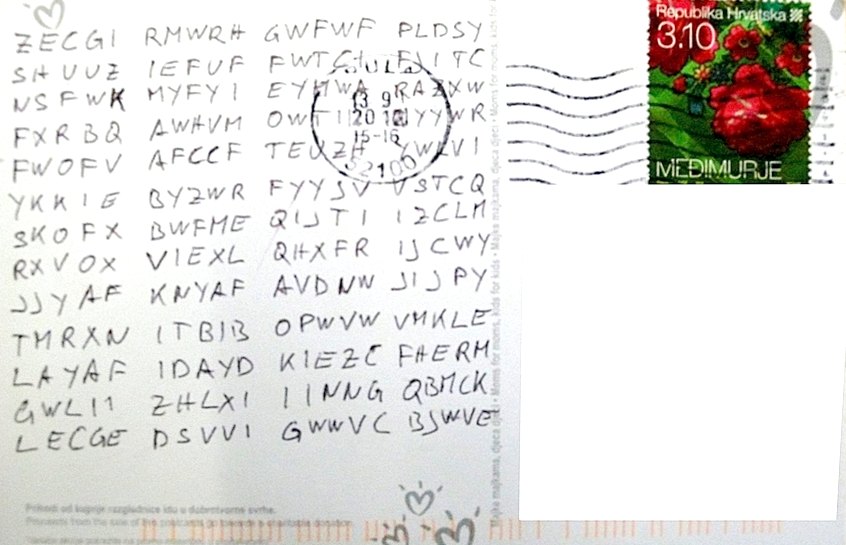 ZECGI RMWRH GWFWF PLDSY
SHUUZ IEFUF FWTCH FIITC
NSFWK MYFYI EYMWA RAZXW
FXRBQ AWHVM OWTII YYWR
FWOFV AFCCF TEUZH YWLVI
YKKIE BYZWR FYYSV VSTCQ
SKOFX BWFME QIJTI IZCLM
RXVOX VIEXL QHXFR IJCWY
JJYAF KNYAF AVDNW JIJPY
TMRXN ITBIB OPWVW VMKLE
LAYAF IDAYD KIEZC FHERM
GWLII ZHLXI IINNG QBMCK
LECGE DSVVI GWWVC BJWVE
Republika Hrvatska
3.10
MEĐIMURJE
PULA
13 9
15-16
52100
Majka majkama, djeca djeci • Moms for moms, kids for kids
Prihodi od kupnje razglednice idu u dobrotvorne svrhe.